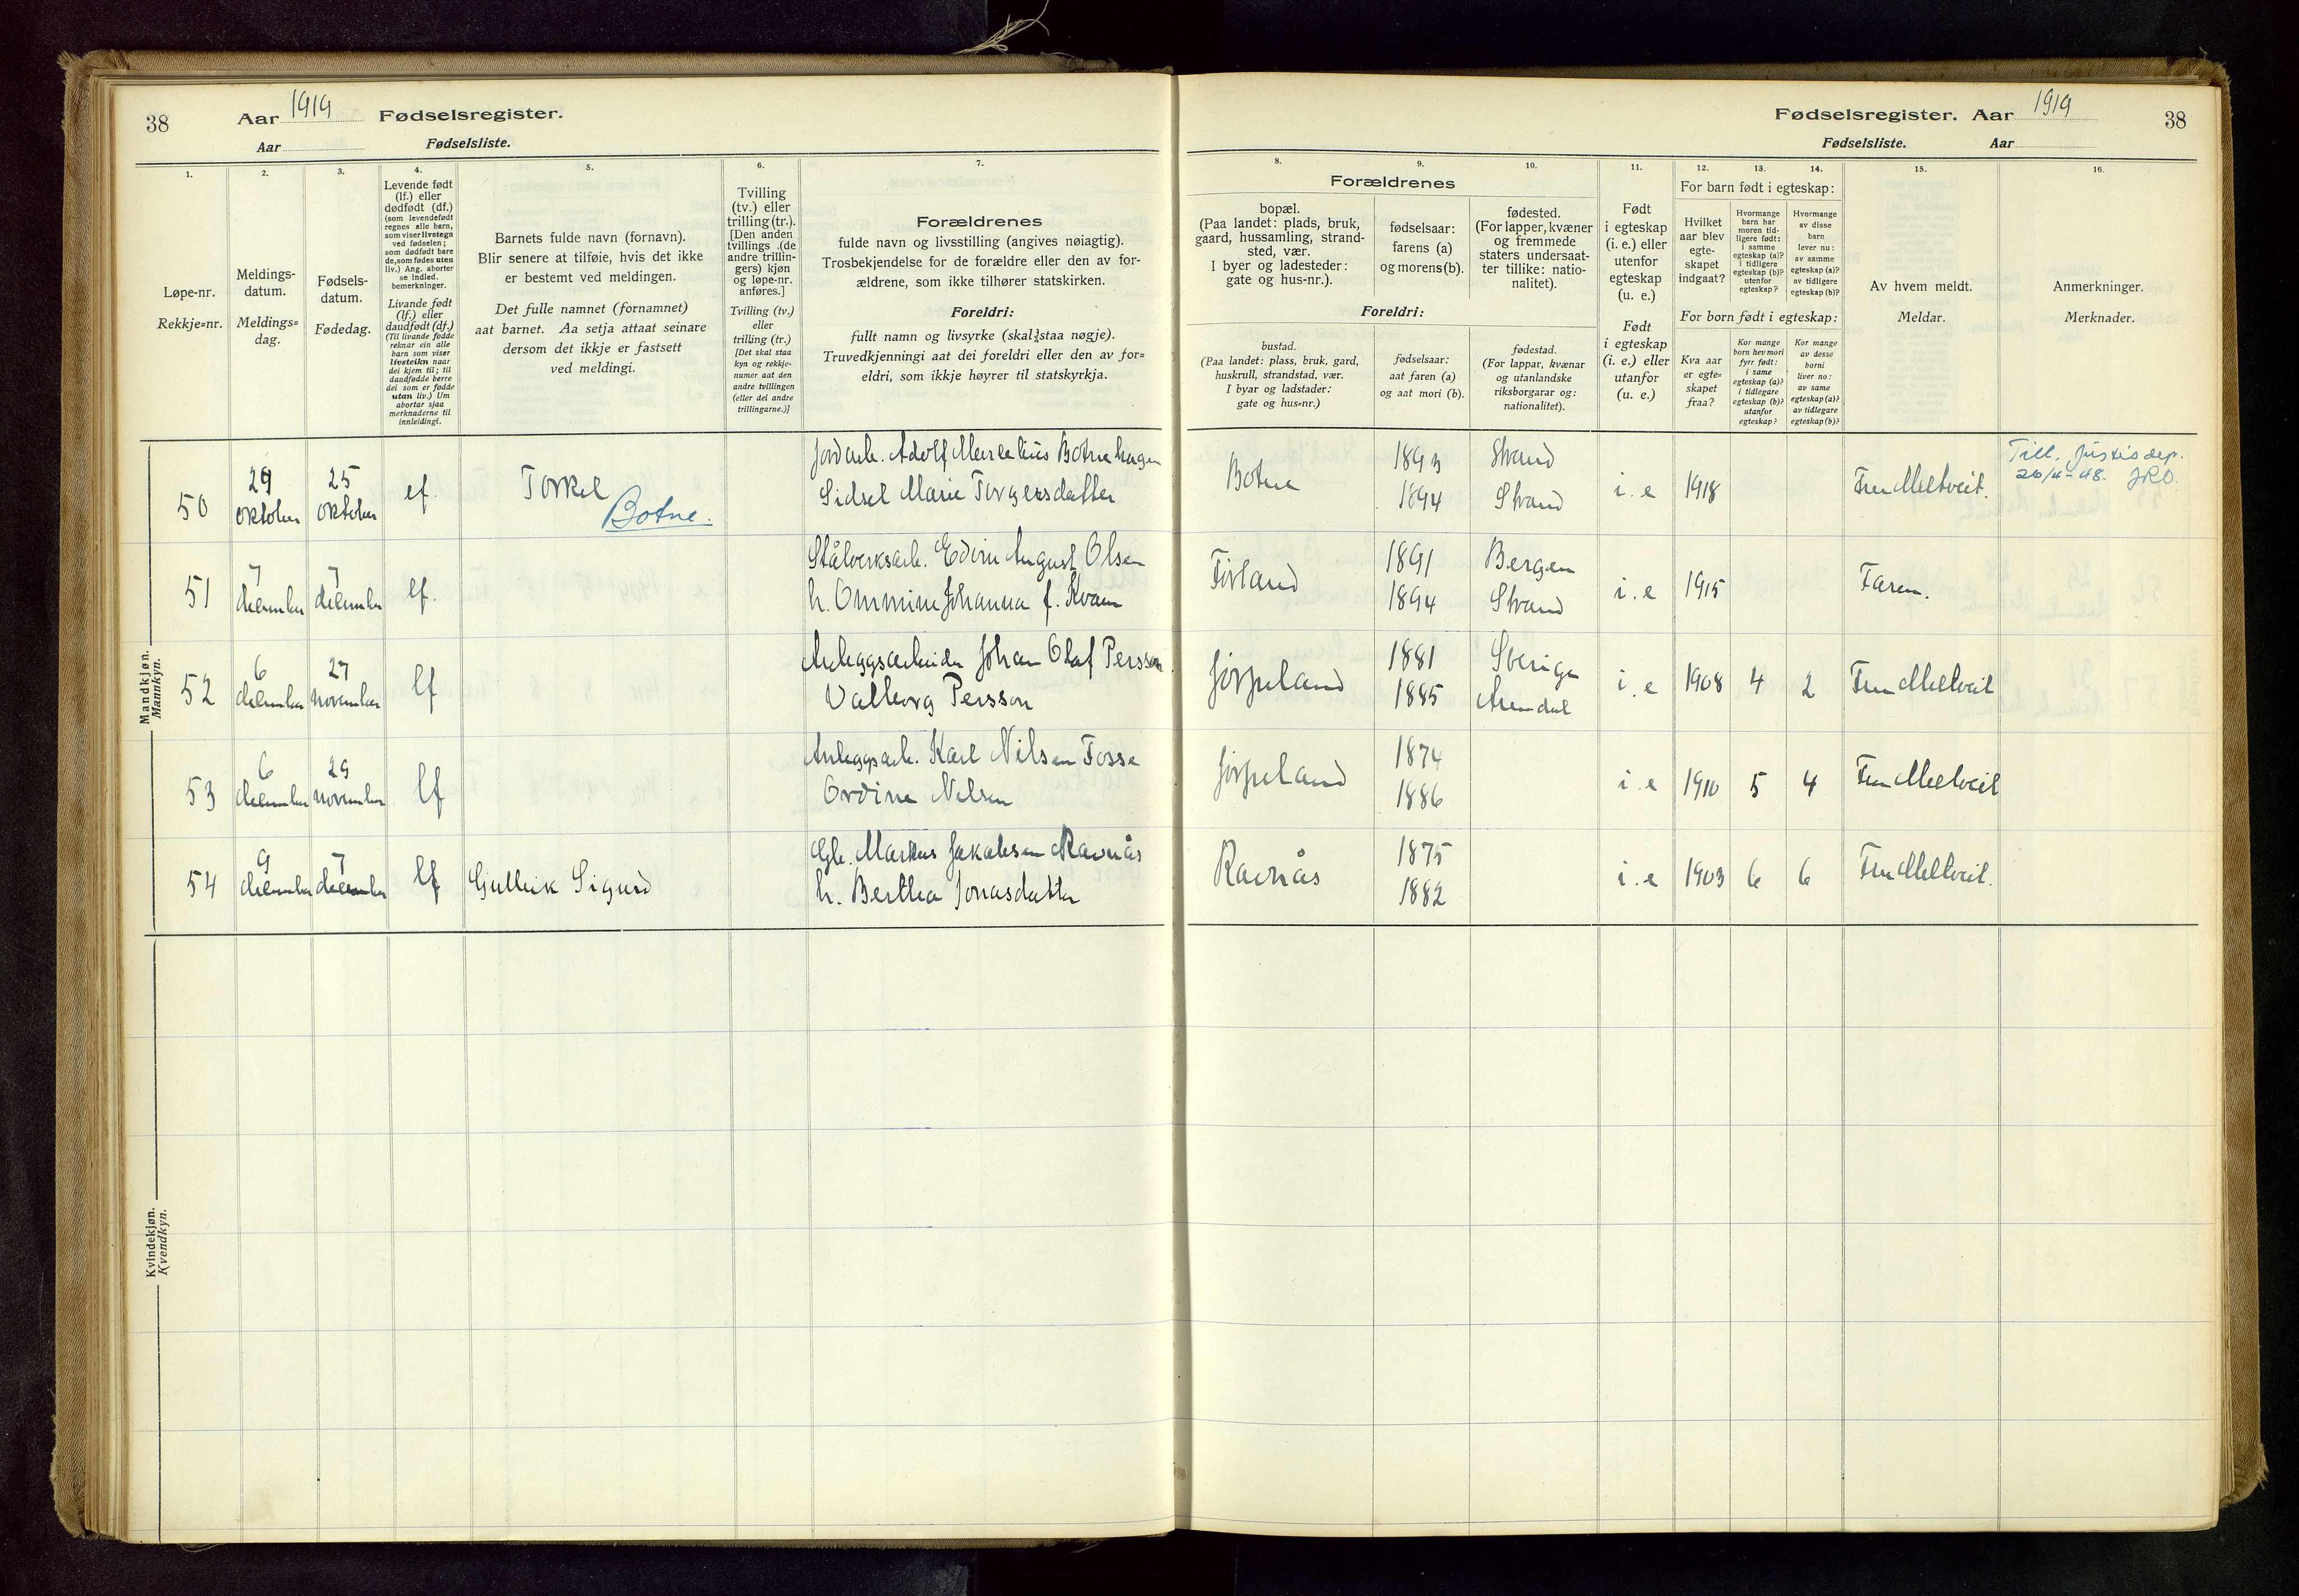 38
Aar 1919 Fødselsregister.
Aar Fødselsliste.
1.
2.
3.
4.
5.
6.
7.
Løpe-nr.
Rekkje=nr.
Meldings-
datum.
Meldings=
dag.
Fødsels-
datum.
Fødedag.
Levende født
(lf.) eller
dødfødt (df.)
(som levendefødt
regnes alle barn,
som viser livstegn
ved fødselen;
som dødfødt bare
de, som fødes uten
liv.) Ang. aborter
se indled.
bemerkninger.
Livande født
(lf.) eller
daudfødt (df.)
(Til livande fødde
reknar ein alle
barn som viser
livsteikn naar
dei kjem til; til
daudfødde berre
dei som er fødde
utan liv.) Um
abortar sjaa
merknaderne til
innleidingi.
Barnets fulde navn (fornavn).
Blir senere at tilføie, hvis det ikke
er bestemt ved meldingen.
Det fulle namnet (fornamnet)
aat barnet. Aa setja attaat seinare
dersom det ikkje er fastsett
ved meldingi.
Tvilling
(tv.) eller
trilling (tr.).
[Den anden
tvillings (de
andre trillin-
gers) kjøn
og løpe-nr.
anføres.]
Tvilling (tv.)
eller
trilling (tr.)
[Det skal staa
kyn og rekkje-
numer aat den
andre tvillingen
(eller dei andre
trillingarne.)]
Forældrenes
fulde navn og livsstilling (angives nøiagtig).
Trosbekjendelse for de forældre eller den av for-
ældrene, som ikke tilhører statskirken.
Foreldri:
fullt namn og livsyrke (skal staa nøgje).
Truvedkjenningi aat dei foreldri eller den av for=
eldri, som ikkje høyrer til statskyrkja.
Mandkjøn.
Mannkyn.
50
29
oktober
25
oktober
lf.
Torkel
Botne.
Jordarb. Adolf Marselius Botnehagen
Sidsel Marie Torgersdatter
51
7
desember
7
desember
lf.
Stålverksarb. Edvin August Olsen
h. Ommine Johanna f. Kvam
52
6
desember
27
november
lf
Anleggsarbeider Johan Olaf Persson
Valborg Persson
53
6
desember
29
november
lf
Anleggsarb. Karl Nilsen Fosse
Ordine Nilsen
54
9
desember
7
desember
lf
Gulleik Sigurd
Gb. Markus Jakobsen Ravnås
h. Berthea Jonasdatter
Kvindekjøn.
Kvendkyn.
Fødselsregister. Aar 1919
38
Fødselsliste. Aar
8.
9.
10.
11.
12.
13.
14.
15.
16.
Forældrenes
bopæl.
(Paa landet: plads, bruk,
gaard, hussamling, strand-
sted, vær.
I byer og ladesteder:
gate og hus-nr.).
fødselsaar:
farens (a)
og morens (b).
fødested.
(For lapper, kvæner
og fremmede
staters undersaat-
ter tillike: natio-
nalitet).
Foreldri:
bustad.
(Paa landet: plass, bruk, gard,
huskrull, strandstad, vær.
I byar og ladstader:
gate og hus=nr.)
fødselsaar:
aat faren (a)
og aat mori (b).
fødestad.
(For lappar, kvænar
og utanlandske
riksborgarar og:
nationalitet).
Født
i egteskap
(i. e.) eller
utenfor
egteskap
(u. e.)
Født
i egteskap
(i. e.) eller
utanfor
(u. e.)
For barn født i egteskap:
Hvilket
aar blev
egte-
skapet
indgaat?
Hvormange
barn har
moren tid-
ligere født:
i samme
egteskap (a)?
i tidligere
egteskap (b)?
utenfor
egteskap?
Hvormange
av disse
barn
lever nu:
av samme
egteskap (a)?
av tidligere
egteskap (b)?
For born født i egteskap:
Kva aar
er egte=
skapet
fraa?
Kor mange
born hev mori
fyrr født:
i same
egteskap (a)?
i tidlegare
egteskap (b)?
utanfor
egteskap?
Kor mange
av desse
borni
liver no:
av same
egteskap (a)?
av tidlegare
egteskap (b)?
Av hvem meldt.
Meldar.
Anmerkninger.
Merknader.
Botne
1893
1894
Strand
Strand
i. e
1918
Fru Meltveit.
Till. justisdep.
20/4-48. JRO.
Fisland
1891
1894
Bergen
Strand
i. e
1915
Faren.
Jørpeland
1881
1885
Sverige
Arendal
i. e
1908
4
2
Fru Meltveit
Jørpeland
1874
1886
i. e
1910
5
4
Fru Meltveit
Ravnås
1875
1882
i. e
1903
6
6
Fru Meltveit.